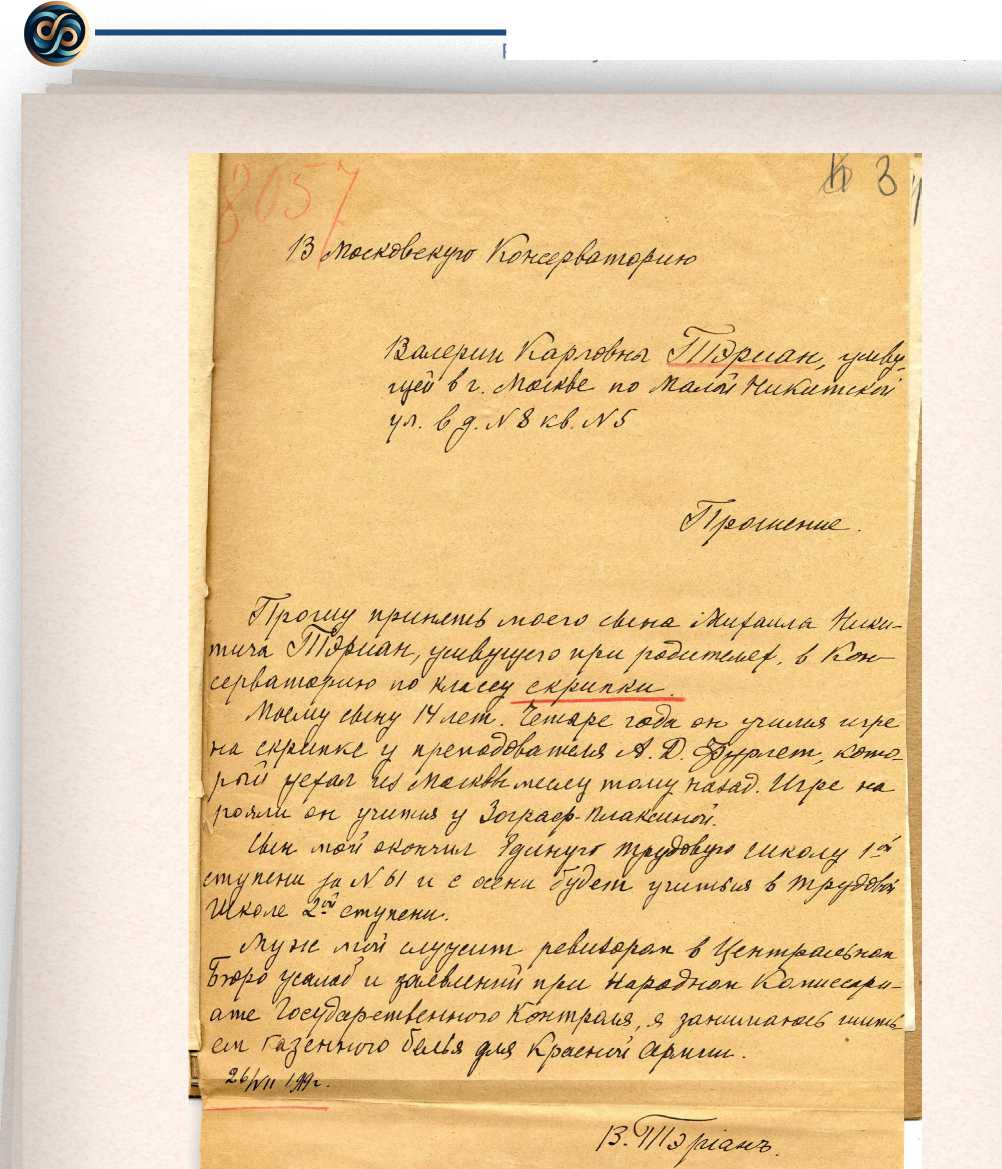 8057
3
В Московскую Консерваторию
Валерии Карловны Тэриан, живу-
щей в г. Москве по Малой Никитской
ул. в д. N 8 кв. N 5
Прошение.
Прошу принять моего сына Михаила Ники-
тича Тэриан, живущего при родителях, в Кон-
серваторию по классу скрипки.
Моему сыну 14 лет. Четыре года он учился игре
на скрипке у преподавателя А. Д. Фургет, кото-
рый уехал из Москвы месяц тому назад. Игре на
рояли он учится у Зограф-Плаксиной.
Сын мой окончил Единую трудовую школу 1ой
ступени за N 61 и с осени будет учиться в трудовой
школе 2ой ступени.
Муж мой служит ревизором в Центральном
Бюро жалоб и заявлений при Народном Комиссари-
ате Государственного Контроля, я занимаюсь шить-
ем казенного белья для Красной Армии.
26/VII 1919г.
В. Тэріанъ.